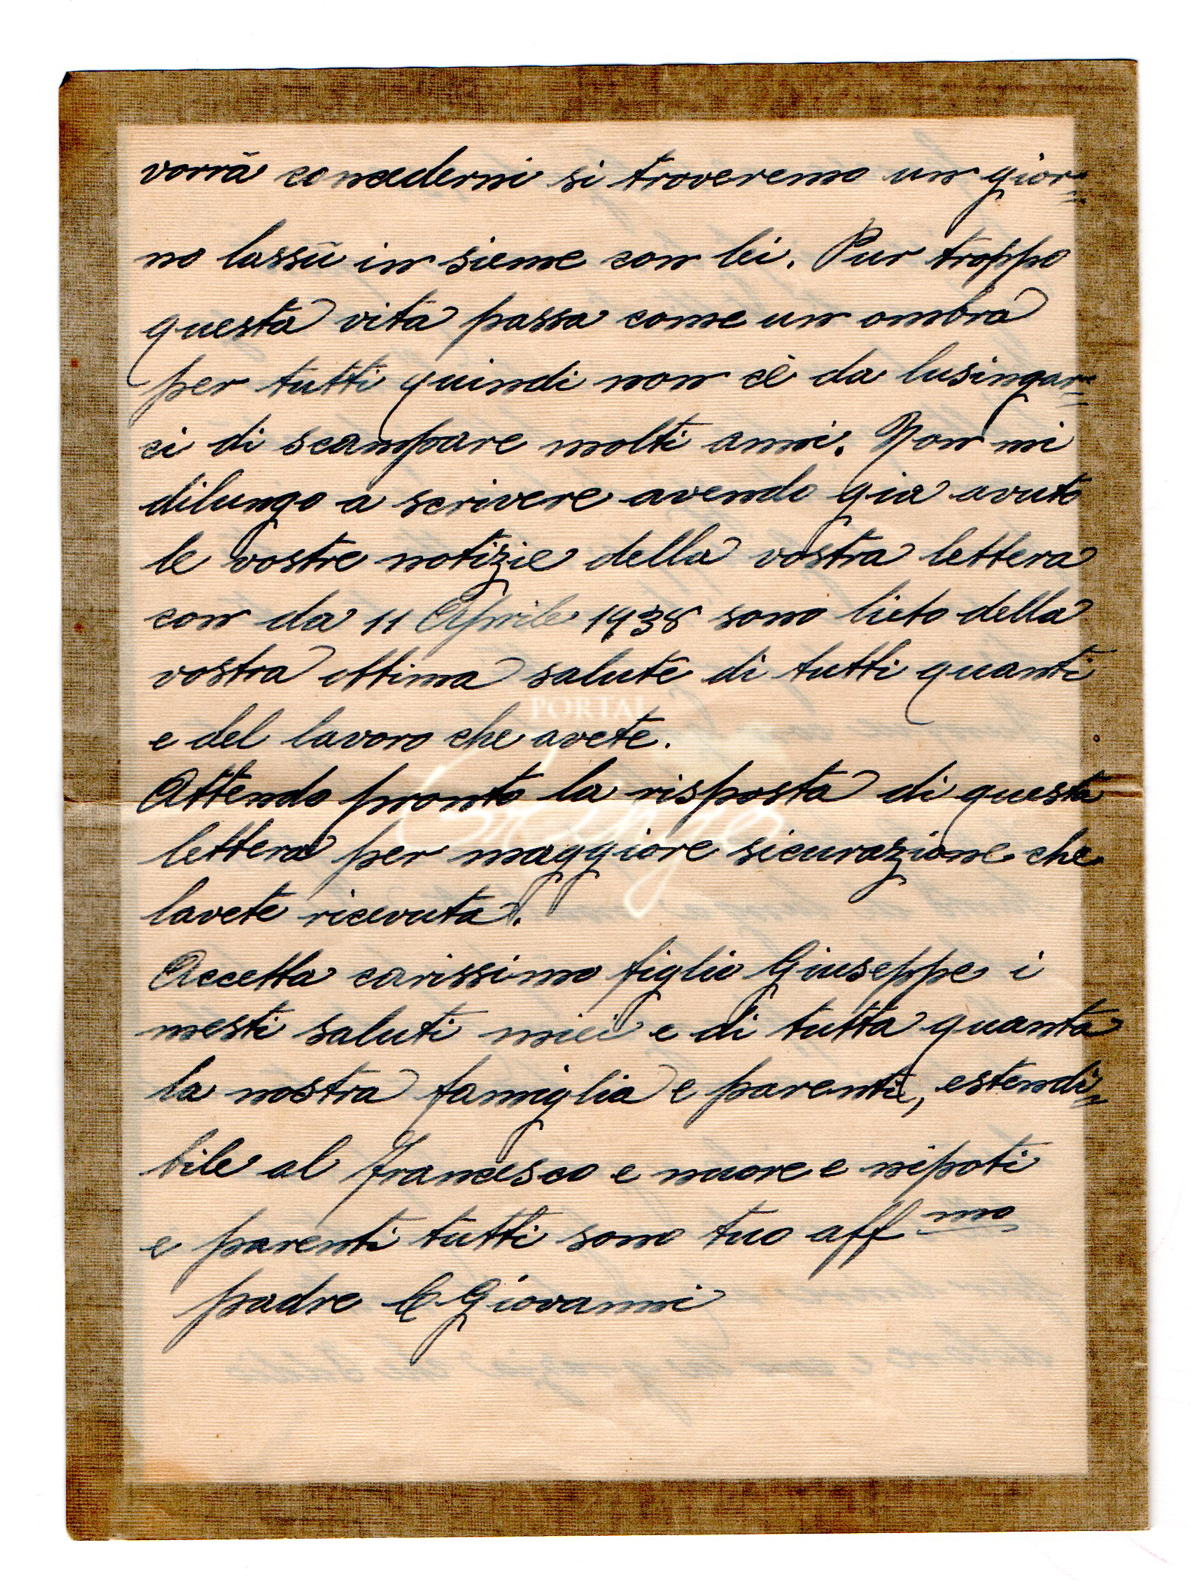 vorrà concederni si troveremo un gior=
no lassù in sieme con lei. Pur troppo
questa vita passa come un ombra
per tutti quindi non cè da lusingar=
ci di scampare molti anni. Non mi
dilungo a scrivere avendo gia avuto
le vostre notizie della vostra lettera
con da 11 Aprile 1938 sono lieto della
vostra ottima salute di tutti quanti
e del lavoro che avete.
PORTAL
Attendo pronto la risposta di questa
lettera per maggiore sicurazione che
lavete ricevuta.
Accetta carissimo figlio Giuseppe i
mesti saluti miei e di tutta quanta
la nostra famiglia e parenti, estendi=
bile al Francesco e nuore e nipoti
e parenti tutti sono tuo aff mo
padre Giovanni